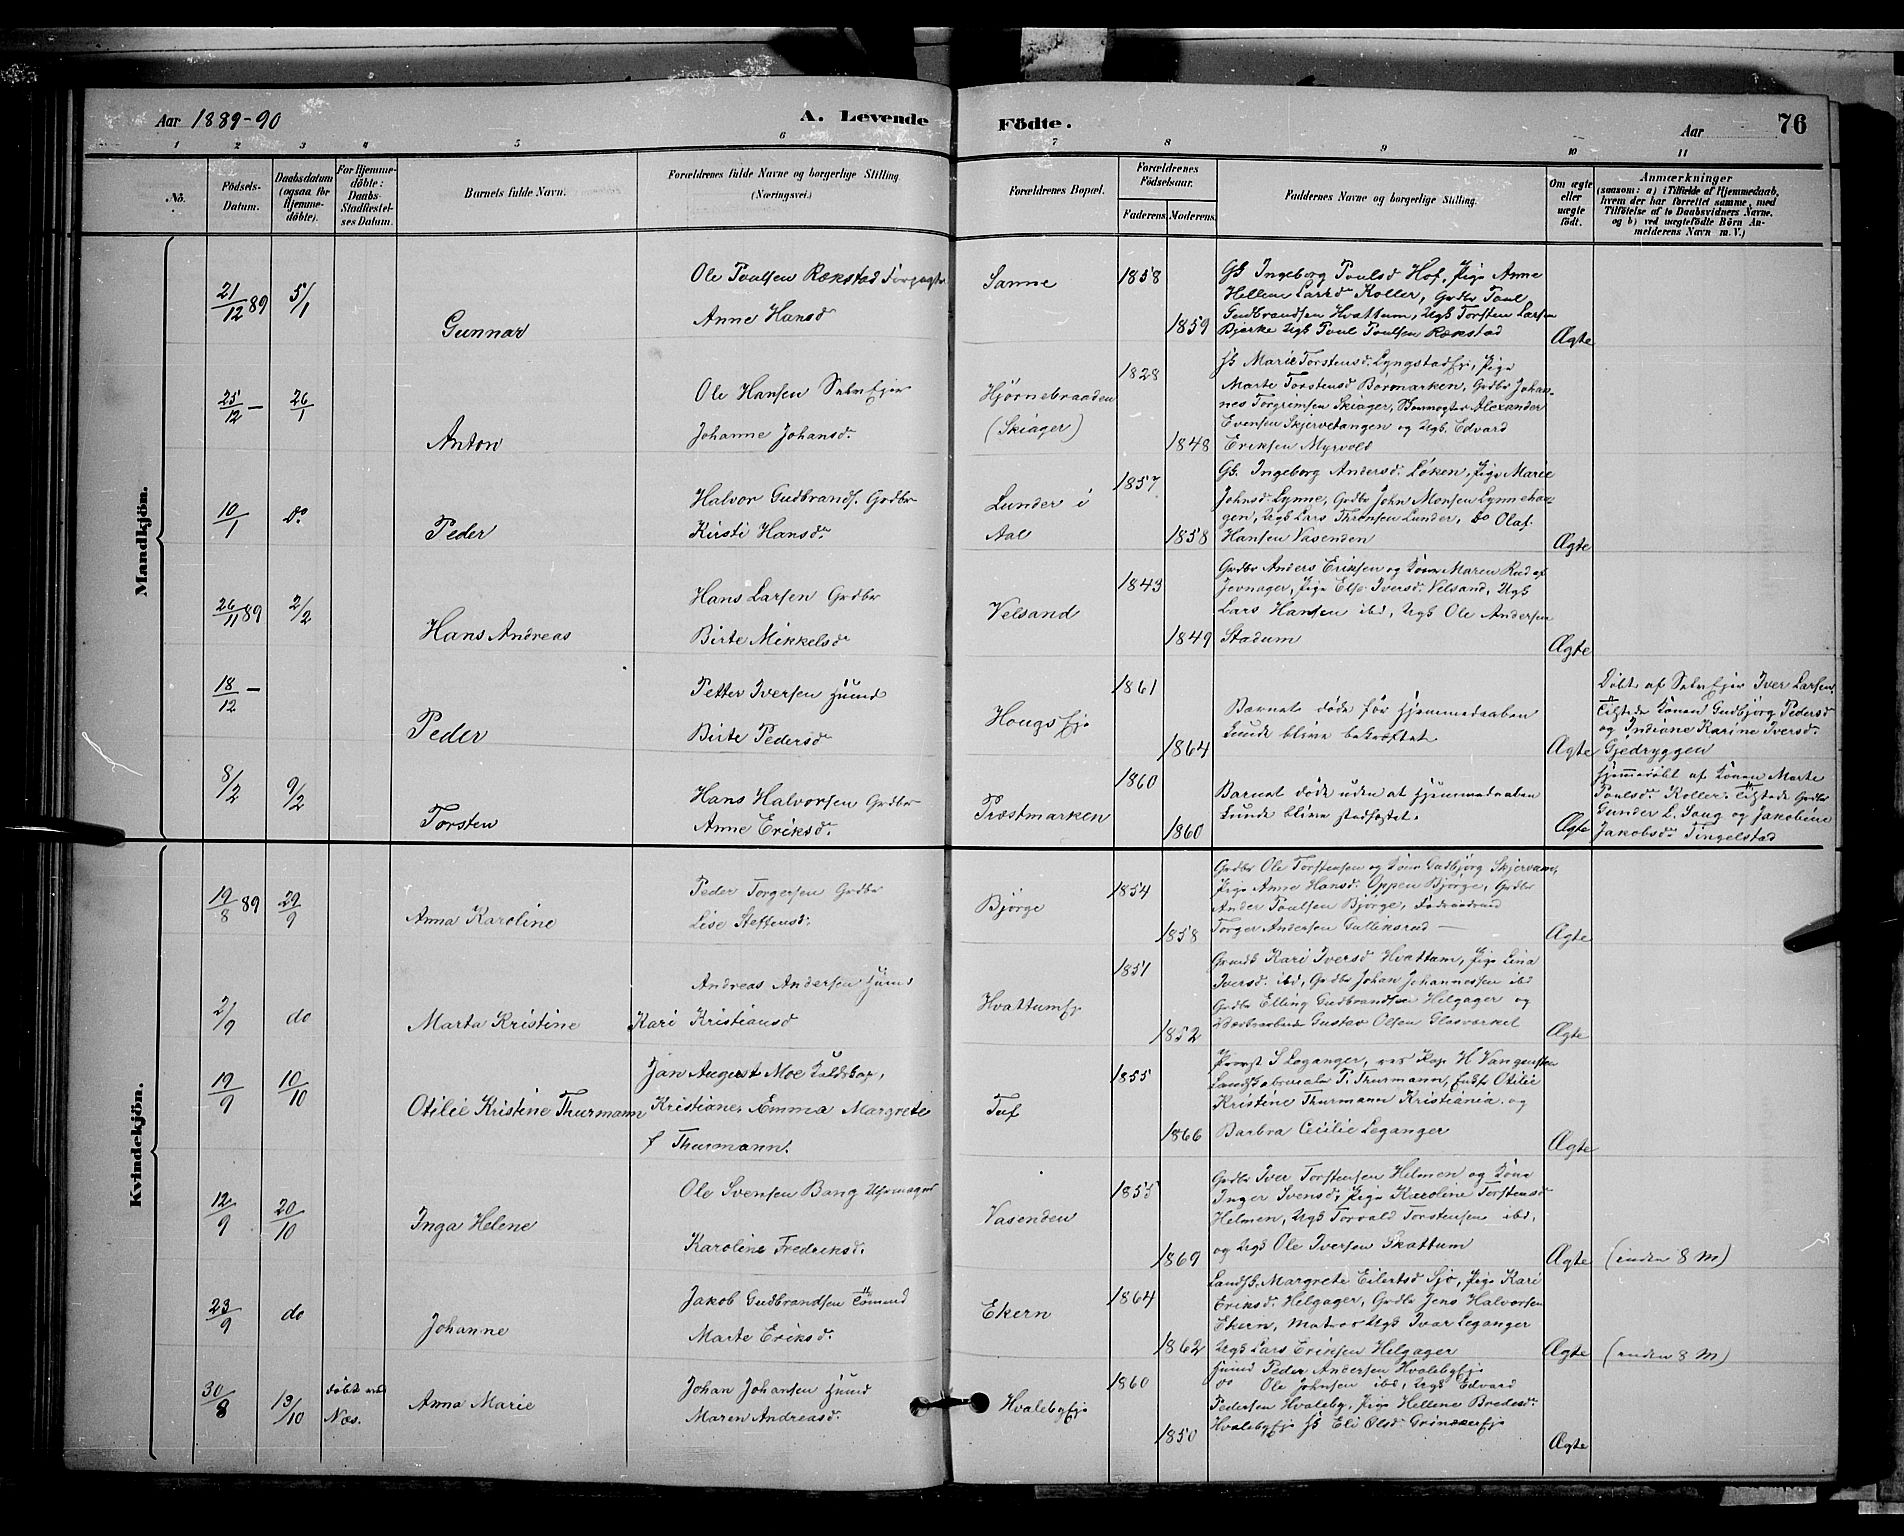 Aar 1889-90
A. Levende Födte.
Aar
76
1 2 3 4 5 6 7 8 9 10 11
No.
Födsels-Datum.
Daabsdatum (ogsaa for Hjemmedöbte).
For Hjemmedöbte: Daabs-Stadfæstelses Datum.
Barnets fulde Navn.
Forældrenes fulde Navne og borgerlige Stilling (Næringsvei.)
Forældrenes Bopæl.
Forældrenes Födselsaar.
Faderens. Moderens.
Faddernes Navne og borgerlige Stilling.
Om ægte eller uægte födt.
Anmærkninger
(saasom: a) i Tilfælde af Hjemmedaab, hvem der har forrettet samme, med Tilföielse af to Daabsvidners Navne, og b) ved uægtefödte Börn Anmelderens Navn m. V.)
Mandkjön.
21/12 89 5/1
Gunnar
Ole Poulsen Rækstad
Anne Hansd
Sanne
1858
1859
GB Ingeborg Poulsd Hof, Pige Anne
Hellene Larsd Koller, Grdbr Poul
Gudbrandsen Hvattum, Ugk Torsten Larsen
Bjerke Ugk Poul Poulsen Rækstad
Ægte
25/12 – 26/1
Anton
Ole Hansen Selveier
Johanne Johansd.
Hjørnebraaden
(Skiager)
1828
1848
Marie Torstensd. Lyngstadeje, Pige
Marte Torstensd Bormarken, Grdbr Johan-
nes Torgrimsen Skiager, Alexander
Evensen Skjervetangen og Ugk. Edvard
Eriksen Myrvold
10/1 Do
Peder
Halvor Gudbrands. Grdbr
Kirsti Hansd.
Lunder i
Aal
1857
1858
Gk. Ingeborg Andersd. Løken, Pige Marie
Johnsd. Lynne, Grdbr John Monsen Lynneha-
gen, Ugk Lars Thronsen Lunder, Do Olaf
Hansen Vasenden
Ægte
26/11 89 2/2
Hans Andreas
Hans Larsen Grdbr
Birte Mikkelsd
Velsand
1843
1849
Grdbr Anders Eriksen og Kone Maren Rud af
Jevnager, Pige Else Iversd. Velsand, Ugk
Lars Hansen ibd, Ugk Ole Andersen
Stadum
Ægte
18/12 –
Peder
Petter Iversen Husmd
Birte Pedersd
Hougseje
1861
1864
Barnet døde før Hjemmedaaben
kunde blive bekræftet.
Ægte
Døbt af Selveier Iver Larsen
Tilstede Konen Gudbjørg Pedersd
og Indiane Karine Iversd.
Gjedryggen
8/2 9/2
Torsten
Hans Halvorsen Grdbr
Anne Eriksd.
Præstmarken
1860
1860
Barnet døde uden at Hjemmedaaben
kunde blive stadfæstet.
Ægte
Hjemmedøbt af Konen Marte
Poulsd. Koller. Tilstede Grdbr
Gunder L. Soug og Jakobine
Jakobsd. Tingelstad
Kvindekjön.
19/8 89 29/9
Anna Karoline
Peder Torgersen Grdbr
Lise Steffensd.
Bjørge
1854
1858
Grdbr Ole Torstensen og Kone Gudbjørg Skjervum,
Pige Anne Hansd. Oppen Bjørge, Grdbr
Ander Poulsen Bjørge, Føderaadsmd
Torger Andersen Gulliksrud –
Ægte
2/9 do
Marta Kristine
Andreas Andersen Husmd
Kari Kristiansd
Hvattumeje
1851
1852
Kari Iversd Hvattum, Pige Lina
Iversd. ibd, Grdbr Johan Johannessen ibd
Grdbr Elling Gudbrandsen Helgager og
Gustav Olsen Glasværket
Ægte
19/9 10/10
Otilie Kristine Thurmann
Jan August Moe Kaldskap,
Kristiane, Æmma Margrete
f Thurmann.
Tuf
1855
1866
Provst S Leganger, res Kap H Vangensten
P. Thurmann, Otilie
Kristine Thurmann Kristiania og
Barbra Cecilie Leganger
Ægte
12/9 20/10
Inga Helene
Ole Svensen Bang Uhrmager
Karoline Fredriksd.
Vasenden
1855
1869
Grdbr Iver Torstensen Helmen og Kone
Inger Svensd, Pige Karoline Torstensd
Helmen, Ugk Torvald Torstensen ibd,
og Ugk Ole Iversen Skattum
Ægte
(inden 8 M)
23/9 do
Johanne
Jakob Gudbrandsen Tømmd
Marte Eriksd.
Ekern
1864
1862
Landh. Margrete Eilertsd Sjo, Pige Kari
Eriksd. Helgager, Grdbr Jens Halvorsen
Ekern, Matros Ugk Ivar Leganger
Ugk Lars Eriksen Helgager
Ægte
(inden 8 M)
30/8 13/10
Døbt ved
Næs.
Anna Marie
Johan Johansen Husmd
Maren Andreasd.
Hvalebyeje
1860
1850
Husmd Peder Andersen Hvalebyeje
do Ole Johnsen ibd, Ugk Edvard
Pedersen Hvaleby, Pige Hellene Bredesd.
Hvalebyeje Eli Olsd.
Ægte